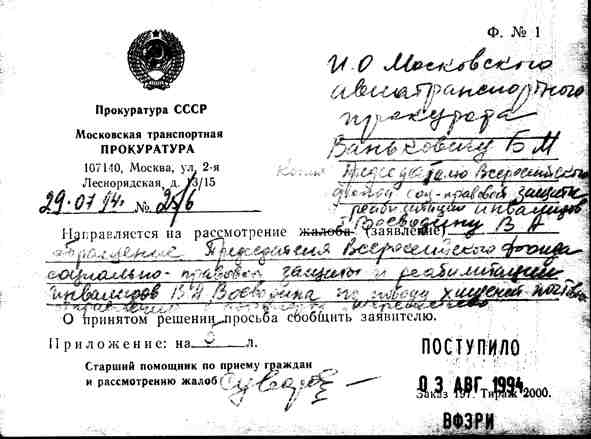 Ф. № 1
Прокуратура СССР
Московская транспортная
ПРОКУРАТУРА
107140, Москва, ул. 2-я
Леснорядская, д. 13/15
29.07.94. № 2/6
И.О Московского
авиатранспортного
прокурора
Ваньковичу Б М
Копия Председателю Всероссийского
фонда соц-правовой защиты
реабилитации инвалидов
Воеводину В А
Направляется на рассмотрение жалоба (заявление)
обращение Председателя Всероссийского фонда
социально-правовой защиты и реабилитации
инвалидов В А Воеводина по поводу хищений
О принятом решении просьба сообщить заявителю.
Приложение: на л.
Старший помощник по приему граждан
и рассмотрению жалоб
ПОСТУПИЛО
03 АВГ. 1994
Заказ 191. Тираж 2000.
ВФЗРИ